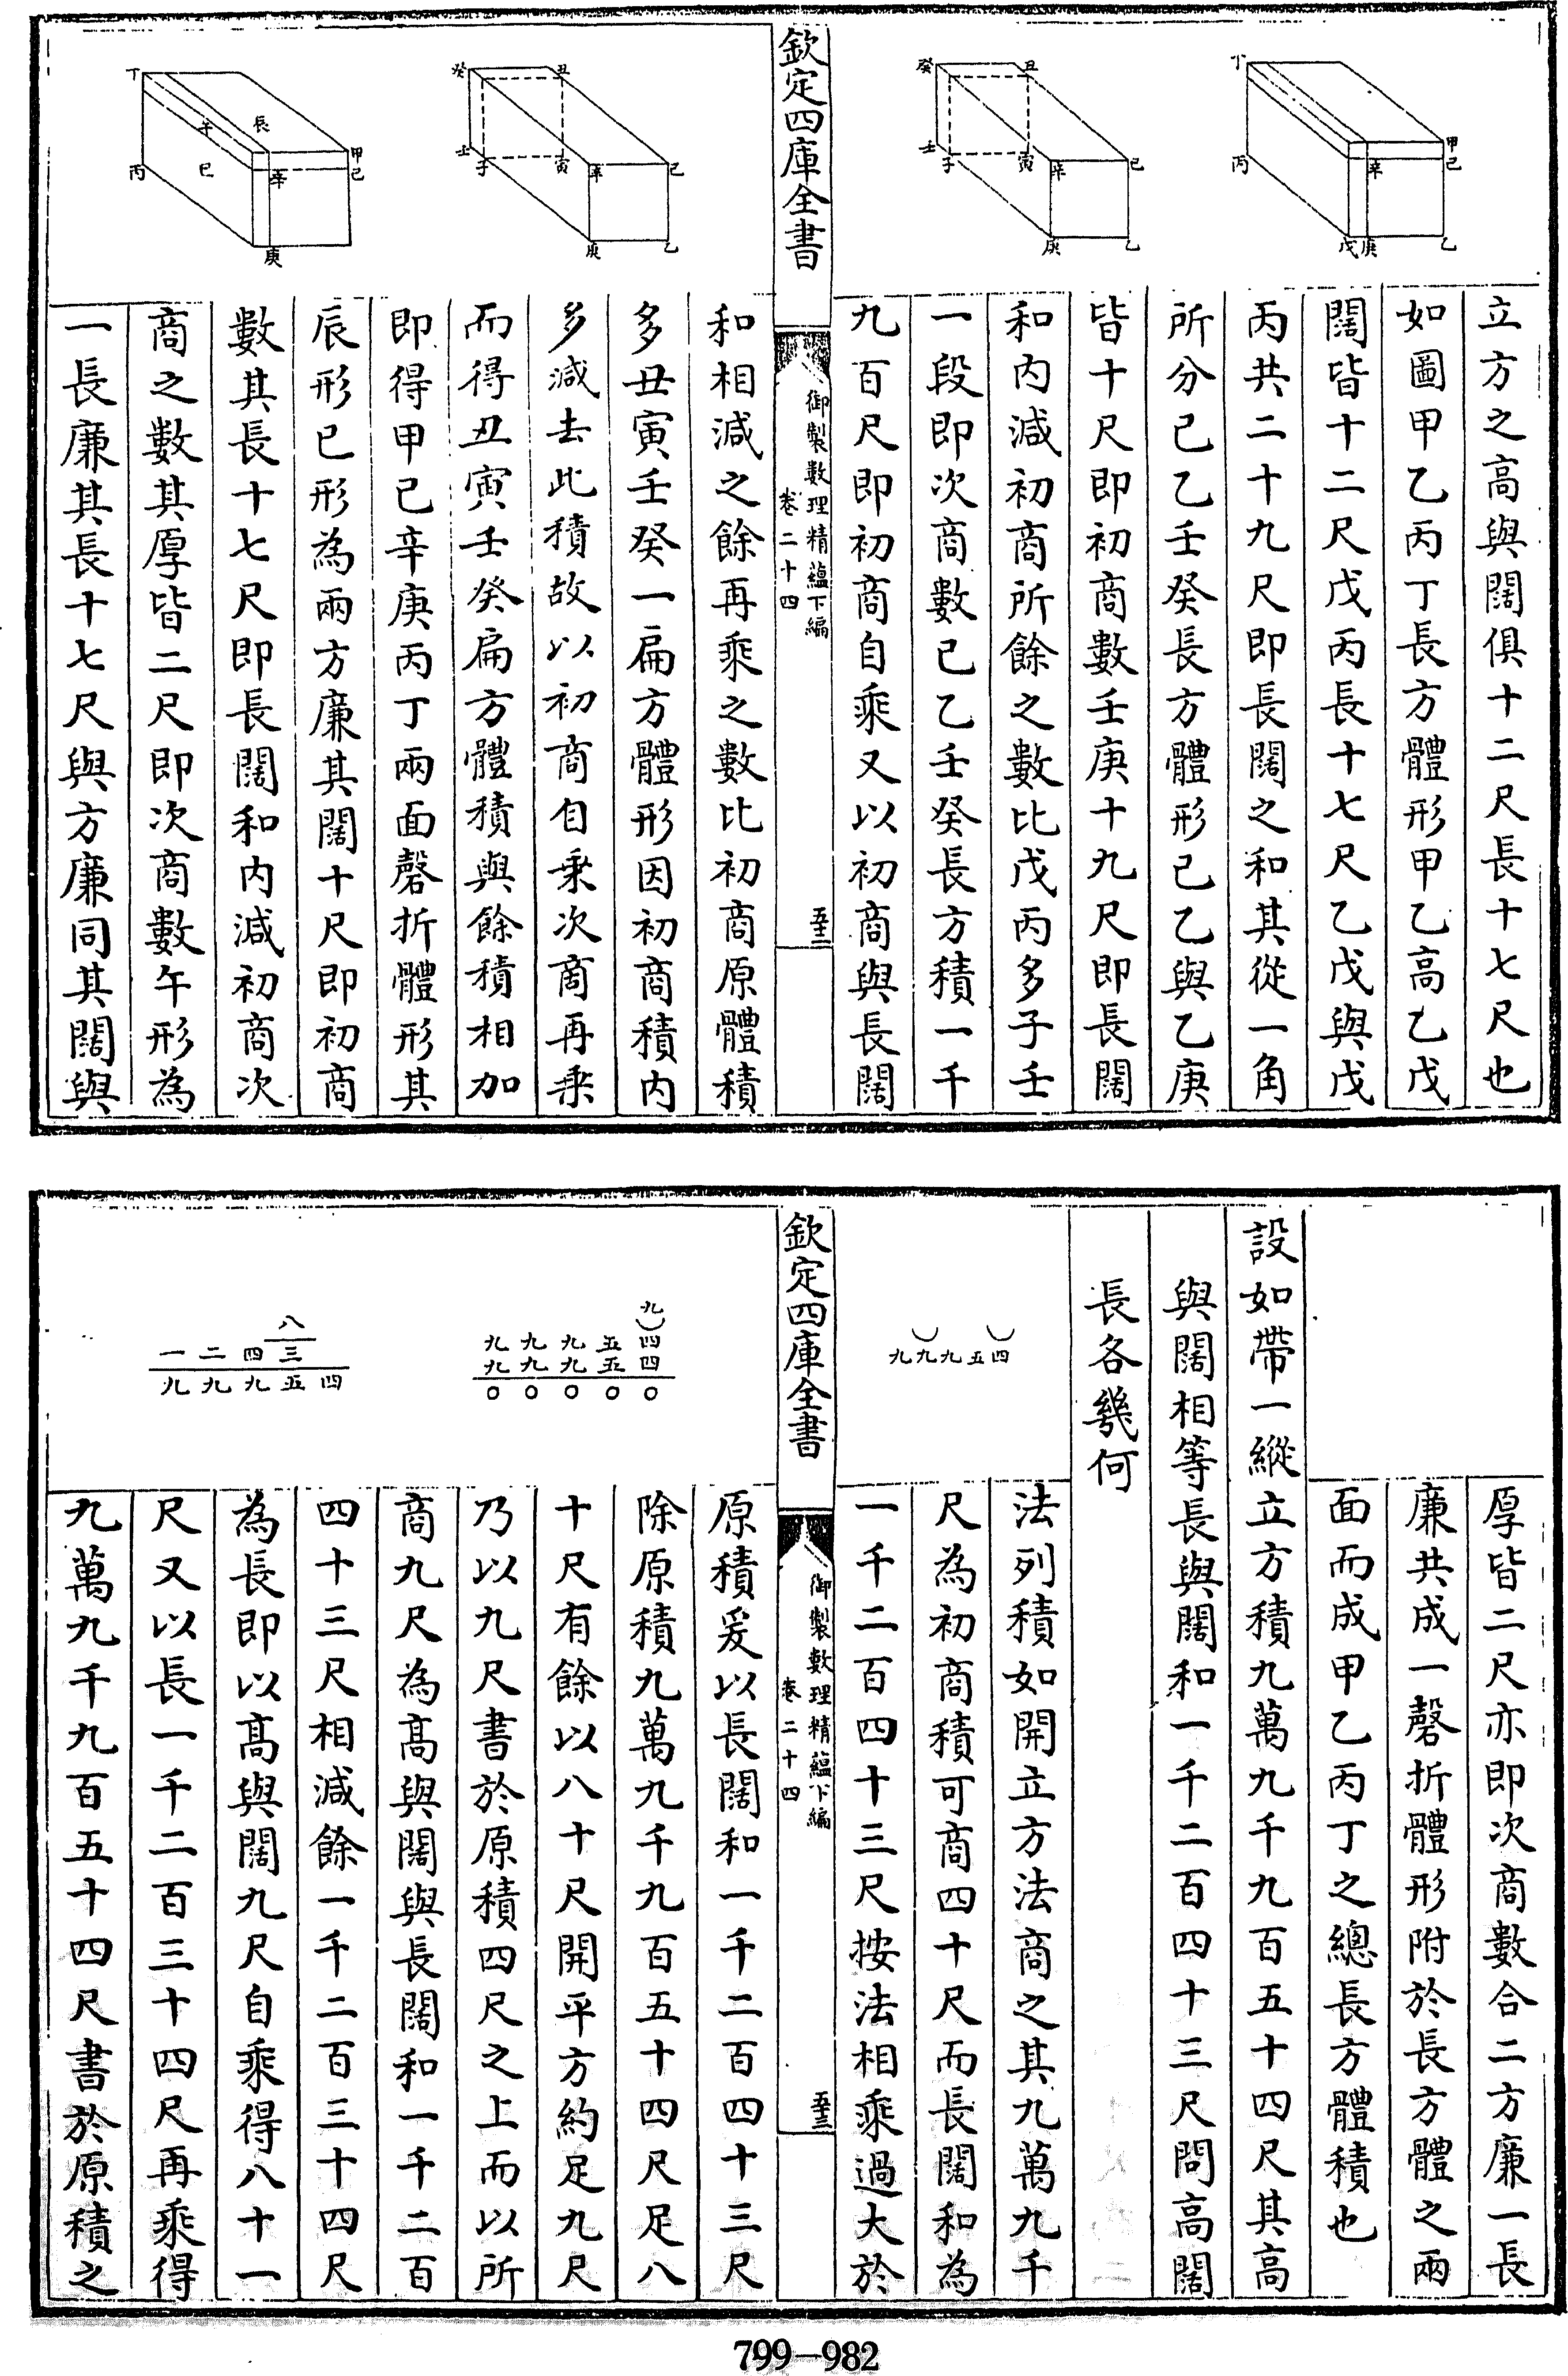 立方之高與闊俱十二尺長十七尺也
如圖甲乙丙丁長方體形甲乙高乙戊
闊皆十二尺戊丙長十七尺乙戊與戊
丙共二十九尺即長闊之和其從一角
所分己乙壬癸長方體形己乙與乙庚
皆十尺即初商數壬庚十九尺即長闊
和內減初商所餘之數比戊丙多子壬
一段即次商數己乙壬癸長方積一千
九百尺即初商自乘又以初商與長闊
欽定四庫全書
御製數理精蘊下編
卷二十四
和相減之餘再乘之數比初商原體積
多丑寅壬癸一扁方體形因初商積內
多減去此積故以初商自乘次商再乘
而得丑寅壬癸扁方體積與餘積相加
即得甲己辛庚丙丁兩面磬折體形其
辰形巳形為兩方廉其闊十尺即初商
數其長十七尺即長闊和內減初商次
商之數其厚皆二尺即次商數午形為
一長廉其長十七尺與方廉同其闊與
丁
丙
甲
己
辛
戊
庚
乙
癸
丑
壬
子
寅
辛
己
庚
乙
癸
丑
壬
子
寅
辛
己
庚
乙
丁
丙
午
辰
巳
甲
己
辛
庚
厚皆二尺亦即次商數合二方廉一長
廉共成一磬折體形附於長方體之兩
面而成甲乙丙丁之總長方體積也
設如帶一縱立方積九萬九千九百五十四尺其高
與闊相等長與闊和一千二百四十三尺問高闊
長各幾何
法列積如開立方法商之其九萬九千
尺為初商積可商四十尺而長闊和為
一千二百四十三尺按法相乘過大於
九九九五四
欽定四庫全書
御製數理精蘊下編
卷二十四
原積爰以長闊和一千二百四十三尺
除原積九萬九千九百五十四尺足八
十尺有餘以八十尺開平方約足九尺
乃以九尺書於原積四尺之上而以所
商九尺為高與闊與長闊和一千二百
四十三尺相減餘一千二百三十四尺
為長即以高與闊九尺自乘得八十一
尺又以長一千二百三十四尺再乘得
九萬九千九百五十四尺書於原積之
九
九九九五四
九九九五四
〇〇〇〇〇
八
一二四三
九九九五四
799—982